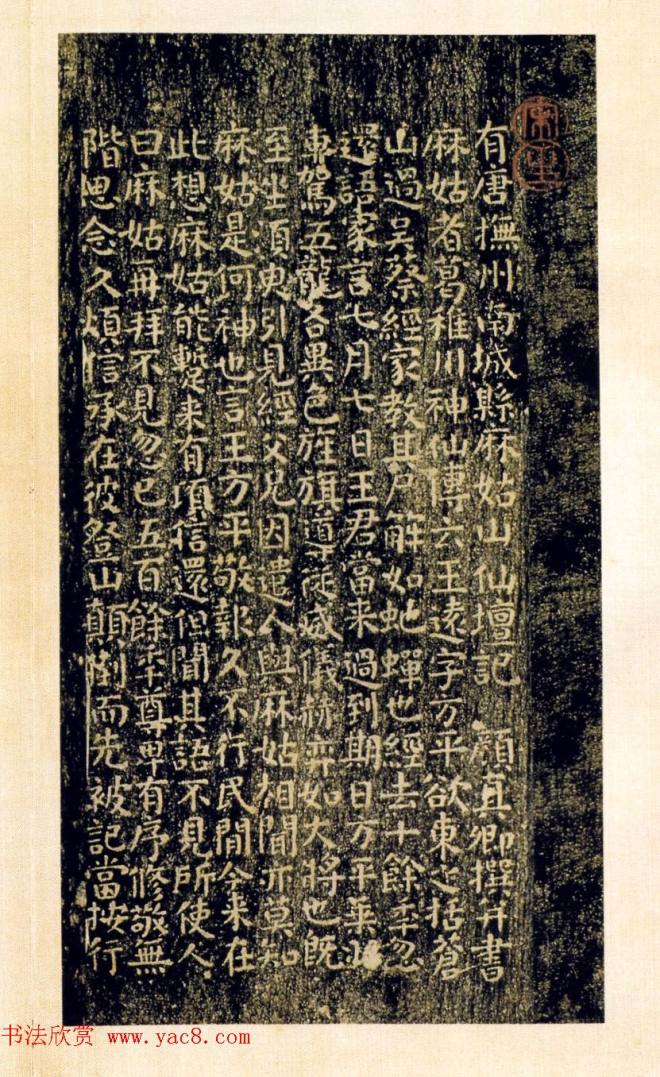 有唐撫州南城縣麻姑山仙壇記　顏真卿撰并書
麻姑者葛稚川神仙傳云王遠字方平欲東之括蒼
山過吳蔡經家教其尸解如虵蟬也經去十餘年忽
還語家言七月七日王君當来過到期日方平乘
車駕五龍各異色旌旗導從威儀赫弈如大將也既
至坐須臾引見經父兄因遣人與麻姑相聞亦莫知
麻姑是何神也言王方平敬報久不行民間今来在
此想麻姑能蹔来有頃信還但聞其語不見所使人
曰麻姑再拜不見忽已五百餘年尊卑有序修敬無
階思念久煩信承在彼登山顛倒而先被記當按行
书法欣赏 www.yac8.com